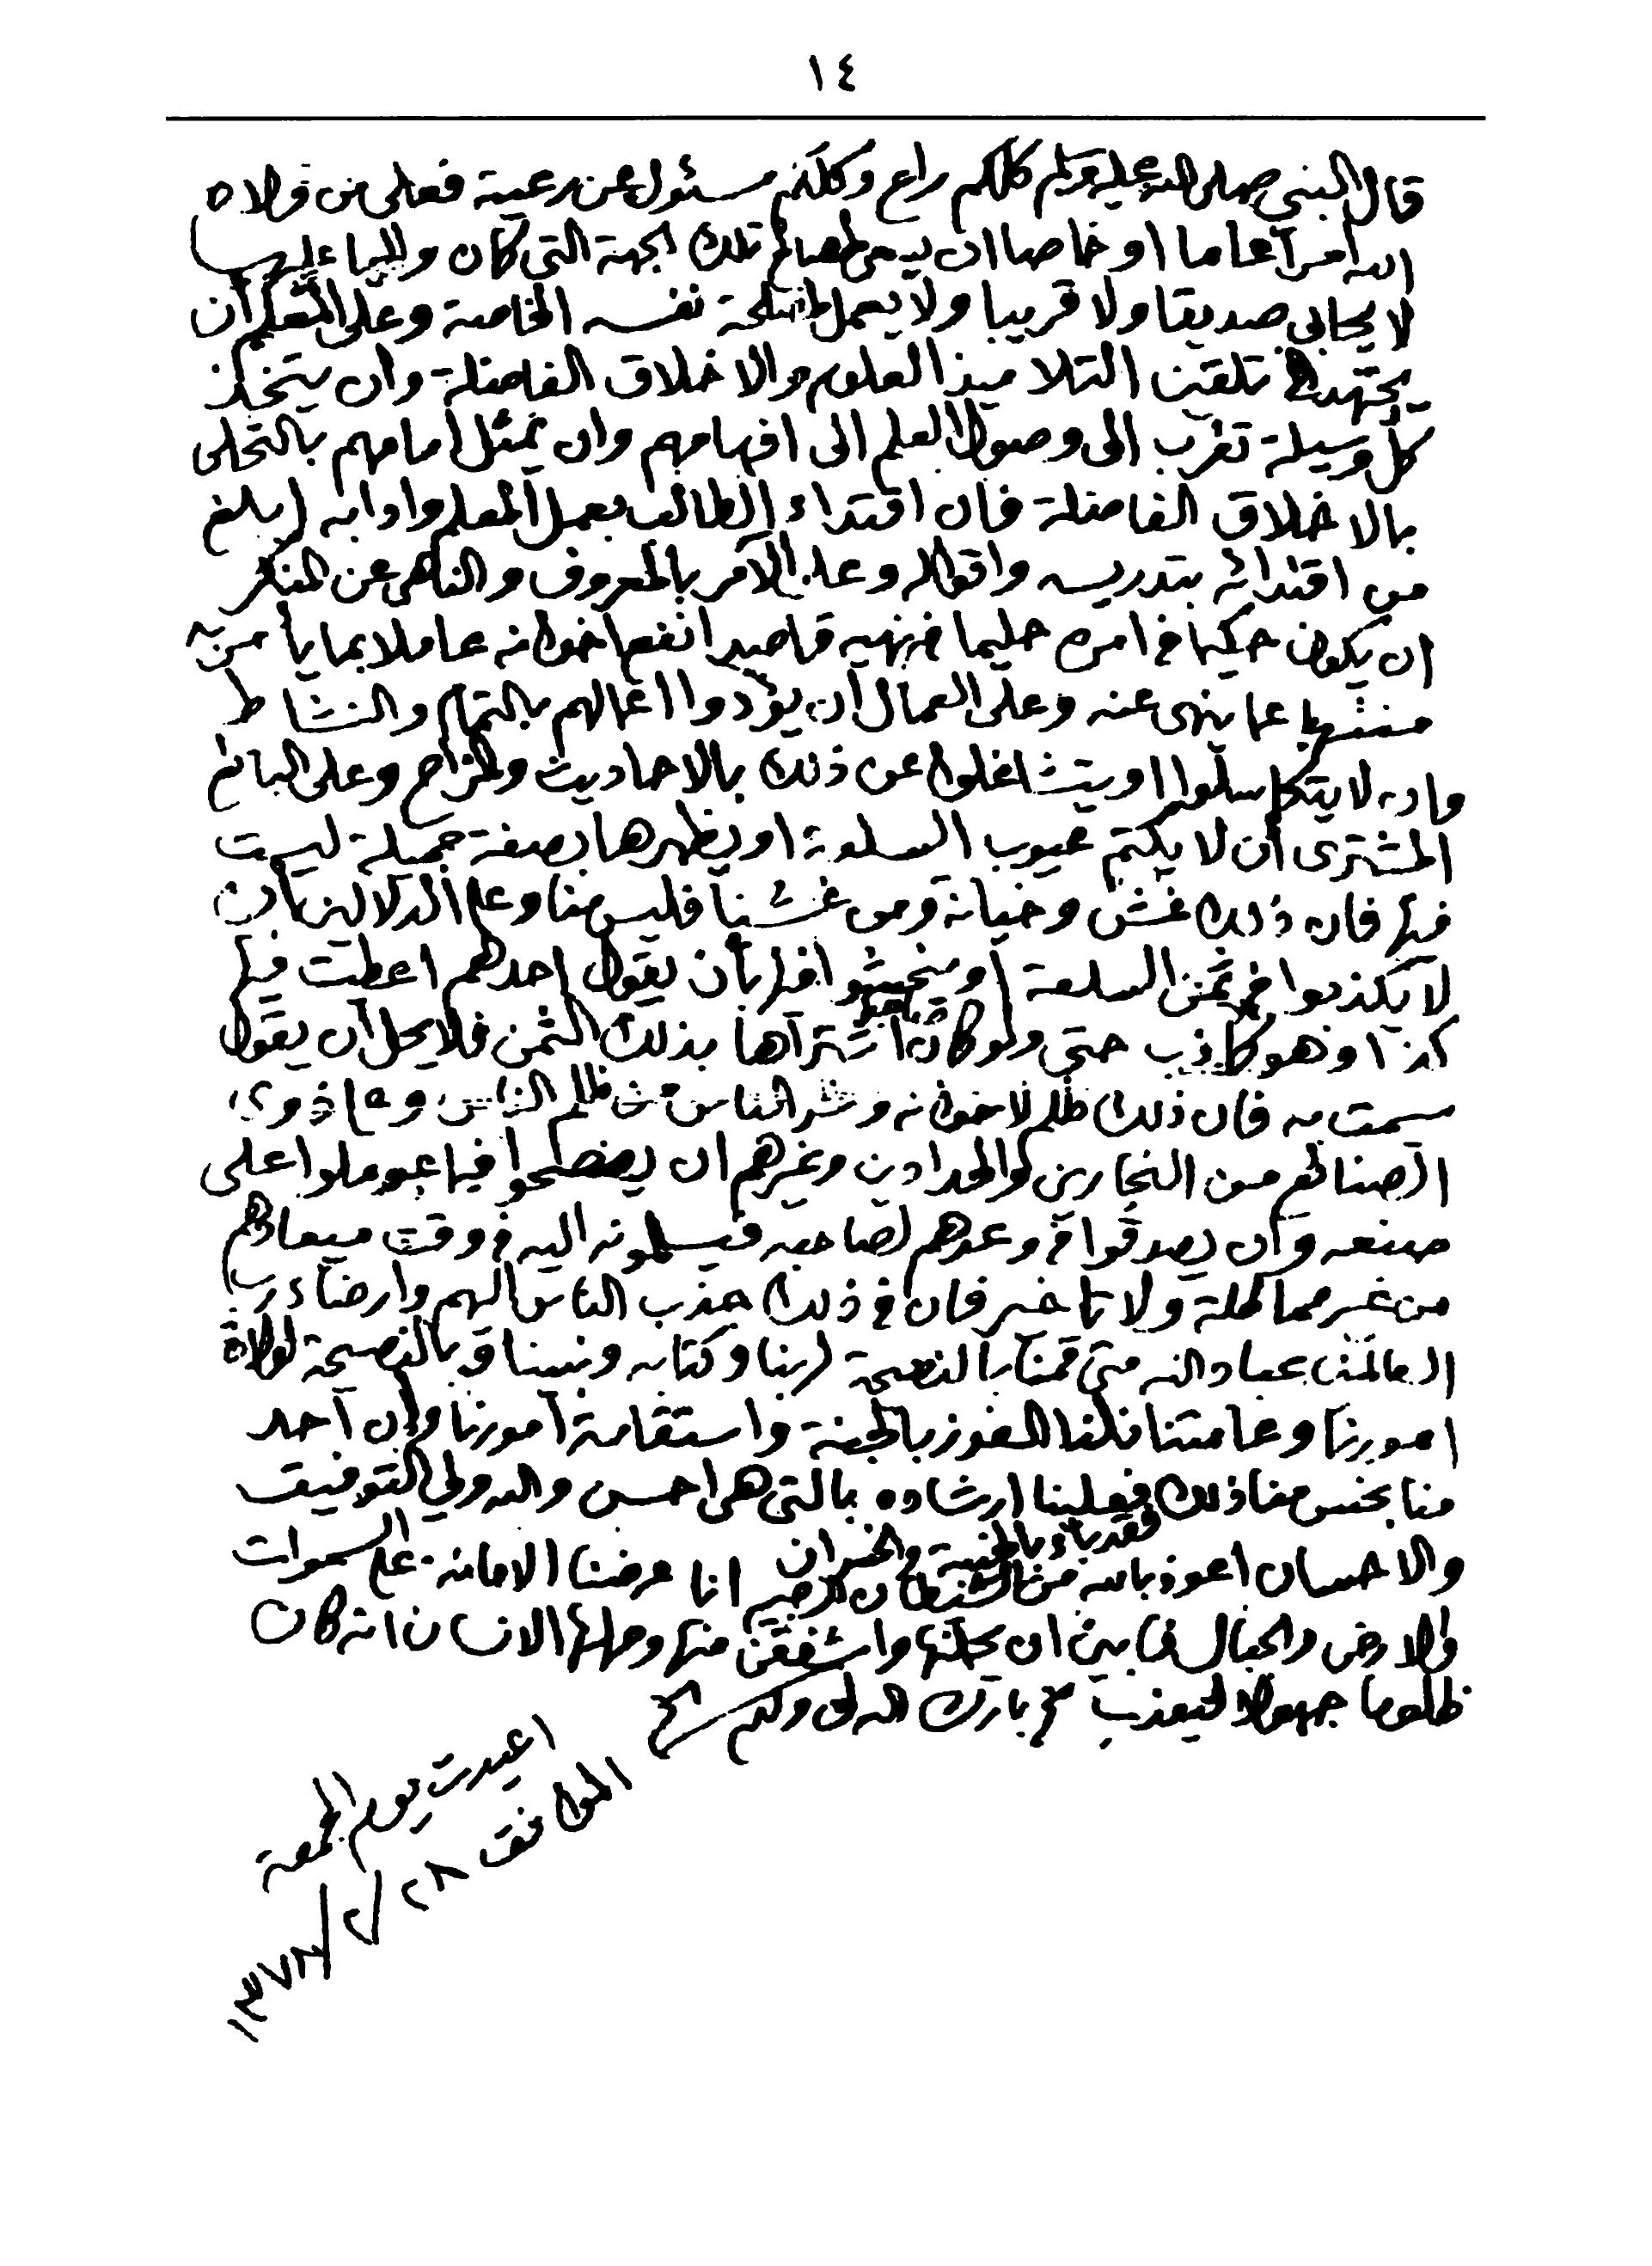 ١٤
قال النبي صلى الله عليه وسلم كلكم راع وكلكم مسئول عن رعيته فعلى من ولاه
الله امرا عاما او خاصا ان يسعى لمصالح تلك الجهة التي كان والياً عليها
لا يحابي صديقا ولا قريبا ولا يعمل لمصلحة نفسه الخاصة وعلى المعلم أن
يجتهد في تلقين التلاميذ العلوم والاخلاق الفاضلة وأن يتخذ
كل وسيلة تقرب الى وصول العلم الى افهامهم وان يمثل امامهم بالتحلى
بالاخلاق الفاضلة فان اقتداء الطالب بعمل المعلم وادابه ابلغ
من اقتدائه بتدريسه واقواله وعلى الآمر بالمعروف والناهى عن المنكر
ان يكون حكيما في امره حليما في نهيه قاصدا نفع اخوانه عاملا بما يأمر به
منتهيا عما ينهى عنه وعلى العمال أن يؤدوا اعمالهم بالتمام والنشاط
وان لا يتكاسلوا او يتشاغلوا عن ذلك بالاحاديث والمزاح وعلى البائع
المشترى أن لا يكتم عيوب السلعة او يظهرها بصفة جميلة ليست
فيها فان ذلك غش وخيانة ومن غشنا فليس منا وعلى الدلالين أن
لا يكذبوا في ثمن السلعة او ينجشوا فيها بأن يقول احدهم اعطيت فيها
كذا وهو كاذب حتى ولو كان اشتراها بذلك الثمن فلا يحل أن يقول
سيمت به فان ذلك ظلم لاخوانه وشر الناس من ظلم الناس وعلى ذوي
الصنائع من النجارين والحدادين وغيرهم ان ينصحوا فيما عوملوا على
صنعه وأن يصدقوا في وعدهم لصاحبه فيسلمونه اليه في وقت ميعادهم
من غير مماطلة ولا تاخير فان في ذلك جذب الناس اليهم وارضاء رب
العالمين عباد الله متى قمنا بالنصيحة لربنا وكتابه ونبينا وبالنصيحة لولاة
امورنا وعامتنا نلنا الفوز بالجنة واستقامة أمورنا وأن أحد
منا بخس منا ذلك فعلينا ارشاده بالتي هى احسن والله ولي التوفيق
فقد باء بالخيبة والخسران
والاحسان اعوذ بالله من الشيطان الرجيم انا عرضنا الامانة على السموات
والارض والجبال فأبين ان يحملنها واشفقن منها وحملها الانسان انه كان
ظلوما جهولا ليعذب الخ بارك الله لى ولكم الخ
اعيدت يوم الجمعة
الموافق ٢٨/٢/